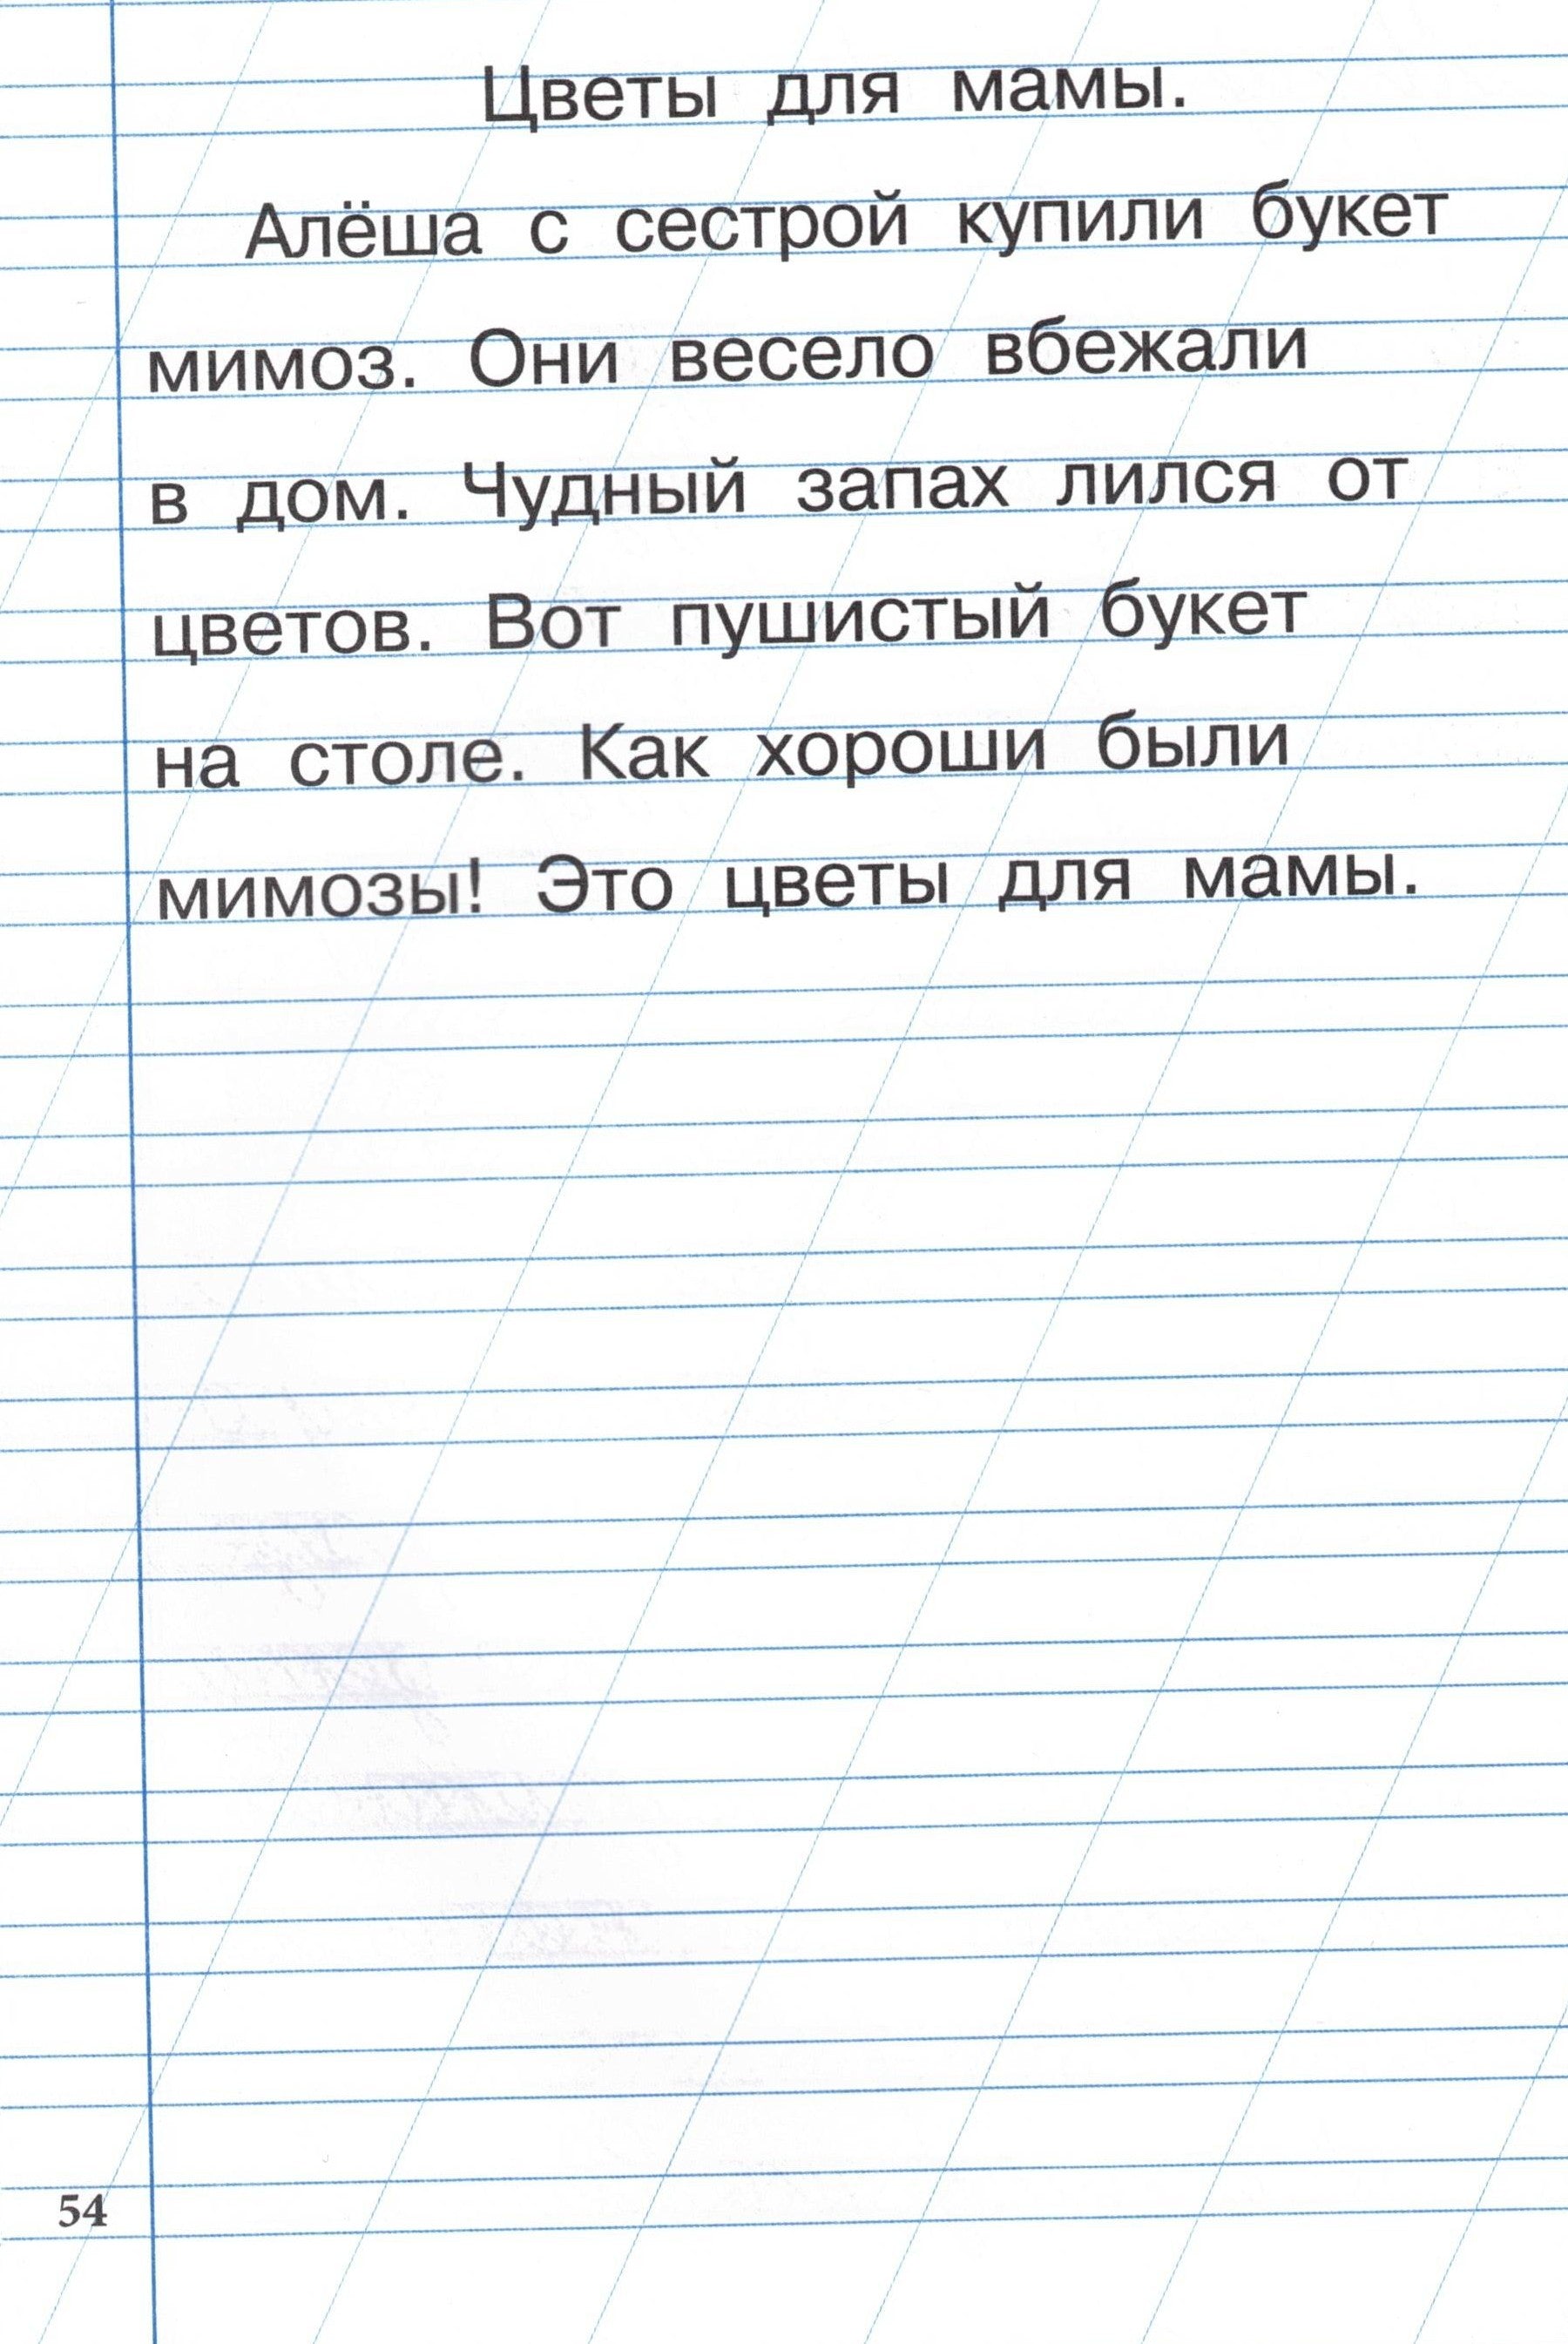 Цветы для мамы.
Алёша с сестрой купили букет
мимоз. Они весело вбежали
в дом. Чудный запах лился от
цветов. Вот пушистый букет
на столе. Как хороши были
мимозы! Это цветы для мамы.
54